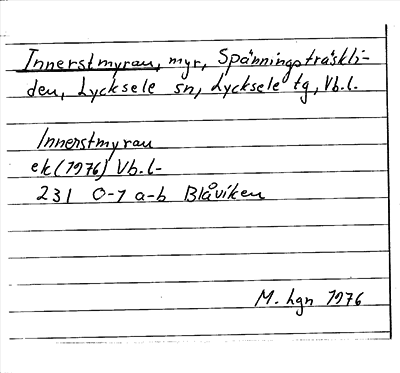 Innerstmyran, myr, Spänningsträskli-
den, Lycksele sn, Lycksele tg, Vb.l.
Innerstmyran
ek (1976) Vb.l-
231 0-1 a-b Blåviken
M. hgn 1976